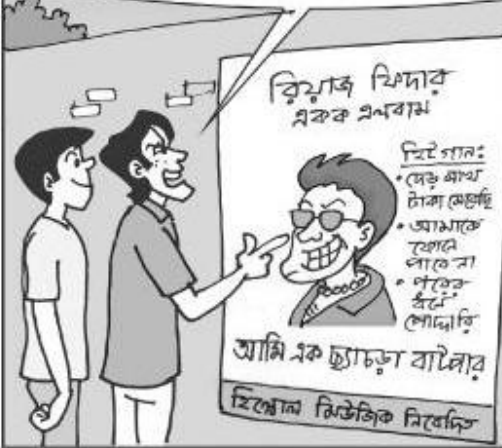 রিয়াজ ফিদার
একক এলবাম
হিট গান:
• দেড় লাখ
টাকা মেরেছি
• আমাকে
ফোনে
পাবে না
• পরের
ধনে
পোদ্দারি
আমি এক ছ্যাচড়া বাটপার
হিল্লোল মিউজিক নিবেদিত